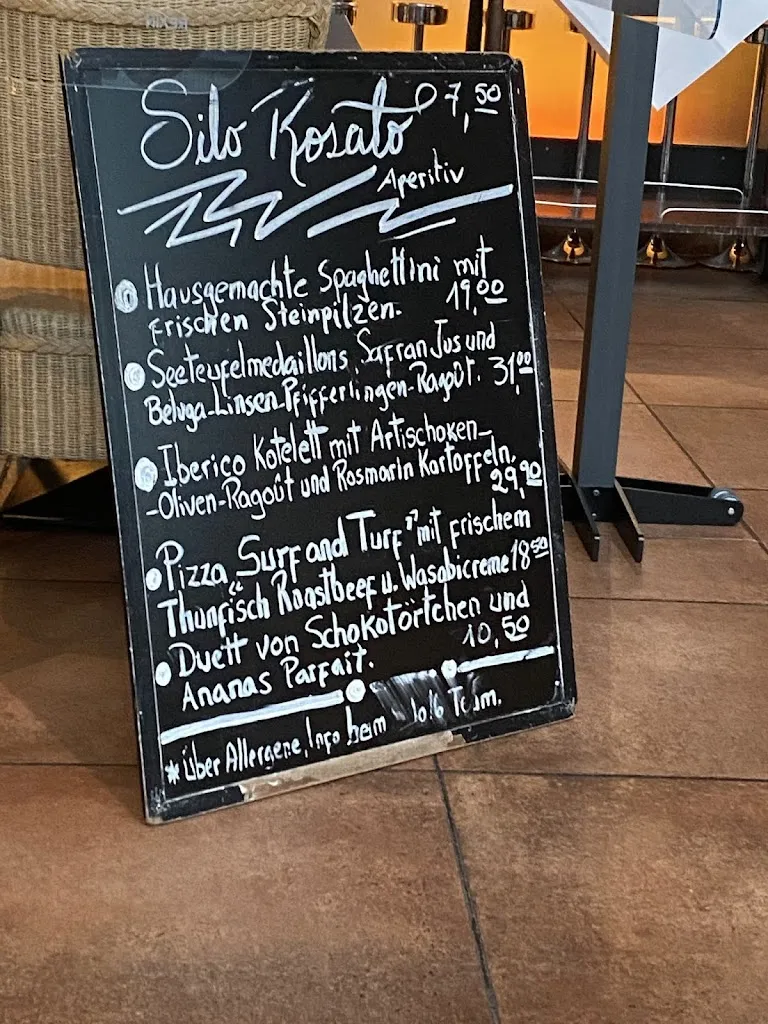 Silo Rosato 7,50
Aperitiv
Hausgemachte Spaghettini mit
frischen Steinpilzen. 19,00
Seeteufelmedaillons, Safran Jus und
Beluga-Linsen-Pfifferlingen-Ragoût. 31,00
Iberico Kotelett mit Artischoken-
-Oliven-Ragoût und Rosmarin Kartoffeln. 29,90
Pizza „Surf and Turf" mit frischem
Thunfisch Roastbeef u. Wasabicreme 18,50
Duett von Schokotörtchen und
Ananas Parfait. 10,50
*über Allergene, Info beim Team.